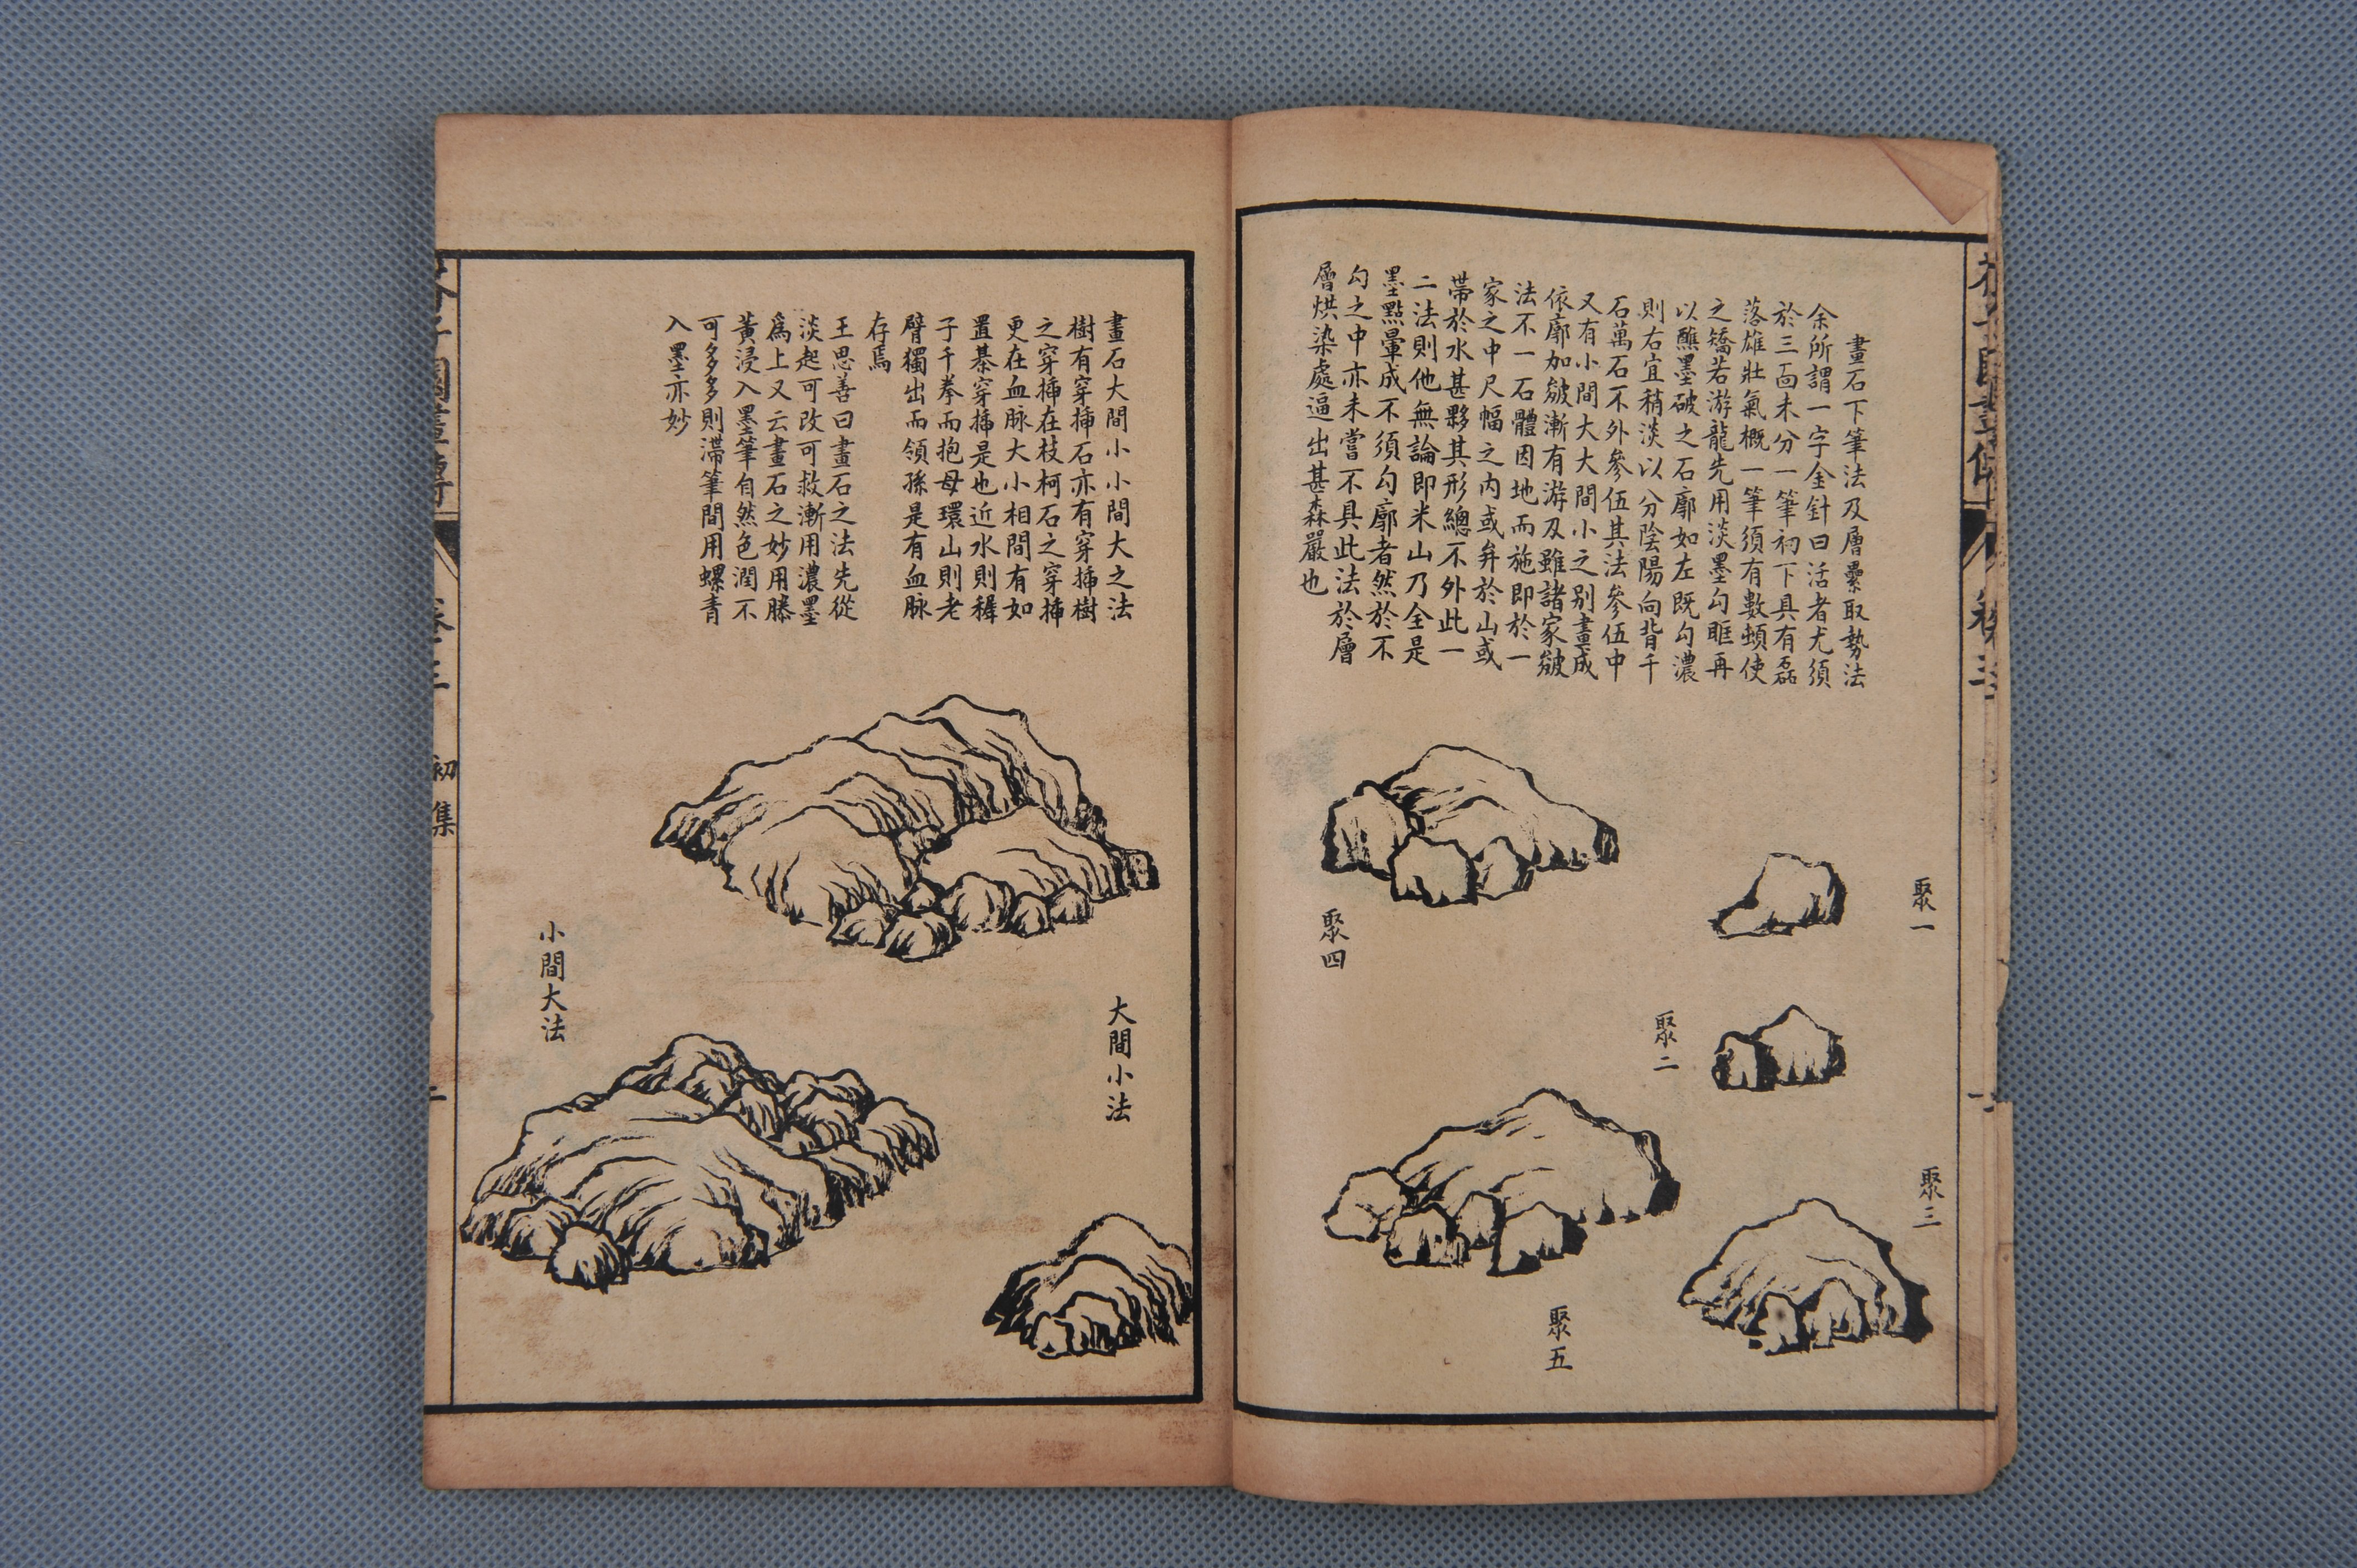 畫石下筆法及層纍取勢法
余所謂一字金針曰活者尤須
於三面未分一筆初下具有磊
落雄壯氣概一筆須有數頓使
之矯若游龍先用淡墨勾眶再
以醮墨破之石廓如左既勾濃
則右宜稍淡以分陰陽向背千
石萬石不外參伍其法參伍中
又有小間大大間小之别畫成
依廓加皴漸有游及雖諸家皴
法不一石體因地而施即於一
家之中尺幅之内或弁於山或
帶於水甚夥其形總不外此一
二法則他無論即米山乃全是
墨點暈成不須勾廓者然於不
勾之中亦未嘗不具此法於層
層烘染處逼出甚森嚴也
聚一
聚二
聚三
聚四
聚五
畫石大間小小間大之法
樹有穿揷石亦有穿揷樹
之穿揷在枝柯石之穿揷
更在血脉大小相間有如
置棊穿揷是也近水則穉
子千拳而抱母環山則老
臂獨出而領孫是有血脉
存焉
王思善曰畫石之法先從
淡起可改可救漸用濃墨
爲上又云畫石之妙用籐
黃浸入墨筆自然色潤不
可多多則滯筆間用螺青
入墨亦妙
大間小法
小間大法
芥子園畫傳
卷三
初集